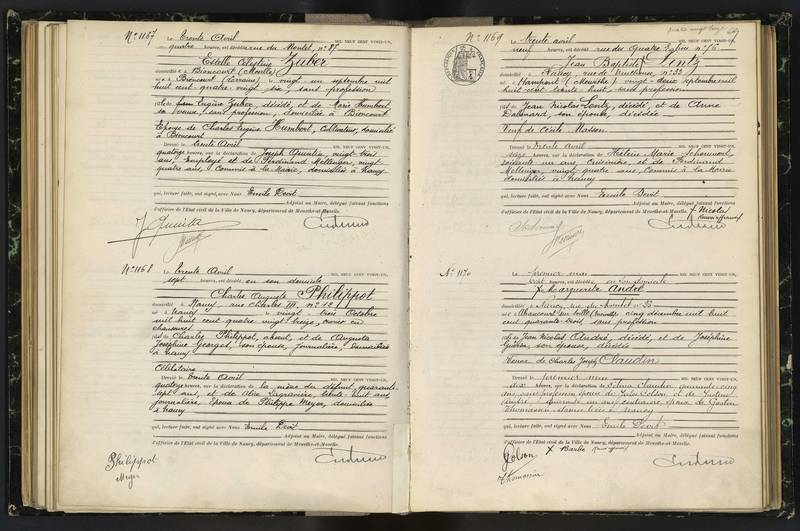 N° 1167
Le trente Avril MIL NEUF CENT VINGT-UN,
quatre heures, est décédée rue du Montet, n° 87
Estelle Célestine Zuber
domiciliée à Bioncourt (Moselle)
née à Bioncourt (Lorraine) le vingt un septembre mil
huit cent quatre vingt six, sans profession
fille de Eugène Zuber, décédé, et de Marie Humbert,
sa veuve, sans profession, domiciliée à Bioncourt
Epouse de Charles Eugène Humbert, Cultivateur, domicilié
à Bioncourt
Dressé le trente Avril MIL NEUF CENT VINGT-UN,
quatorze heures, sur la déclaration de Joseph Quintin, vingt trois
ans, Employé et de Ferdinand Mellinger, vingt
quatre ans, Commis à la Mairie, domiciliés à Nancy
qui, lecture faite, ont signé avec Nous Emile Devit
Adjoint au Maire, délégué faisant fonctions
d'officier de l'Etat civil de la Ville de Nancy, département de Meurthe-et-Moselle.
N° 1168
Le trente Avril MIL NEUF CENT VINGT-UN,
sept heures, est décédé en son domicile
Charles Auguste Philippot
domicilié à Nancy, rue Charles III, n° 121
né à Nancy le vingt trois Octobre
mil huit cent quatre vingt treize, ouvrier en
chaussures
fils de Charles Philippot, absent, et de Augusta
Joséphine Georges, son épouse, journalière, domiciliée
à Nancy
Célibataire
Dressé le trente Avril MIL NEUF CENT VINGT-UN,
quatorze heures, sur la déclaration de la mère du défunt, quarante
sept ans, et de Alice Lagravière, trente huit ans,
journalière, épouse de Philippe Meyer, domiciliées
à Nancy
qui, lecture faite, ont signé avec Nous Emile Devit
Adjoint au Maire, délégué faisant fonctions
d'officier de l'Etat civil de la Ville de Nancy, département de Meurthe-et-Moselle.
Philippot
Meyer
N° 1169
Le trente avril MIL NEUF CENT VINGT-UN,
neuf heures, est décédé rue des Quatre Eglises n° 76
Jean Baptiste Lentz
domicilié à Nancy, rue de n° 33
né à Hampont (Meurthe) le vingt deux septembre mil
huit cent trente huit, sans profession
fils de Jean Nicolas Lentz, décédé, et de Anne
son épouse, décédée
Veuf de Cécile Masson
Dressé le trente avril MIL NEUF CENT VINGT-UN,
seize heures, sur la déclaration de Hélène Marie
soixante un ans, et de Ferdinand
Mellinger, vingt quatre ans, Commis à la Mairie
domiciliés à Nancy
qui, lecture faite, ont signé avec Nous Emile Devit
Adjoint au Maire, délégué faisant fonctions
d'officier de l'Etat civil de la Ville de Nancy, département de Meurthe-et-Moselle.
N° 1170
Le premier mai MIL NEUF CENT VINGT-UN,
heures, est décédée en son domicile
Marguerite André
domiciliée à Nancy, rue du Montet n° 33
née à le cinq décembre mil huit
cent quarante trois, sans profession
fille de Jean Nicolas André, décédé, et de Joséphine
son épouse, décédée
Veuve de Charles Joseph Claudin
Dressé le premier mai MIL NEUF CENT VINGT-UN,
dix heures, sur la déclaration de Claudin, quarante cinq
ans, sans profession, épouse de Golson, et de
ans, couturière, épouse de Gaston
Thomassin domiciliées à Nancy
qui, lecture faite, ont signé avec Nous Emile Devit
Adjoint au Maire, délégué faisant fonctions
d'officier de l'Etat civil de la Ville de Nancy, département de Meurthe-et-Moselle.
Golson
Thomassin